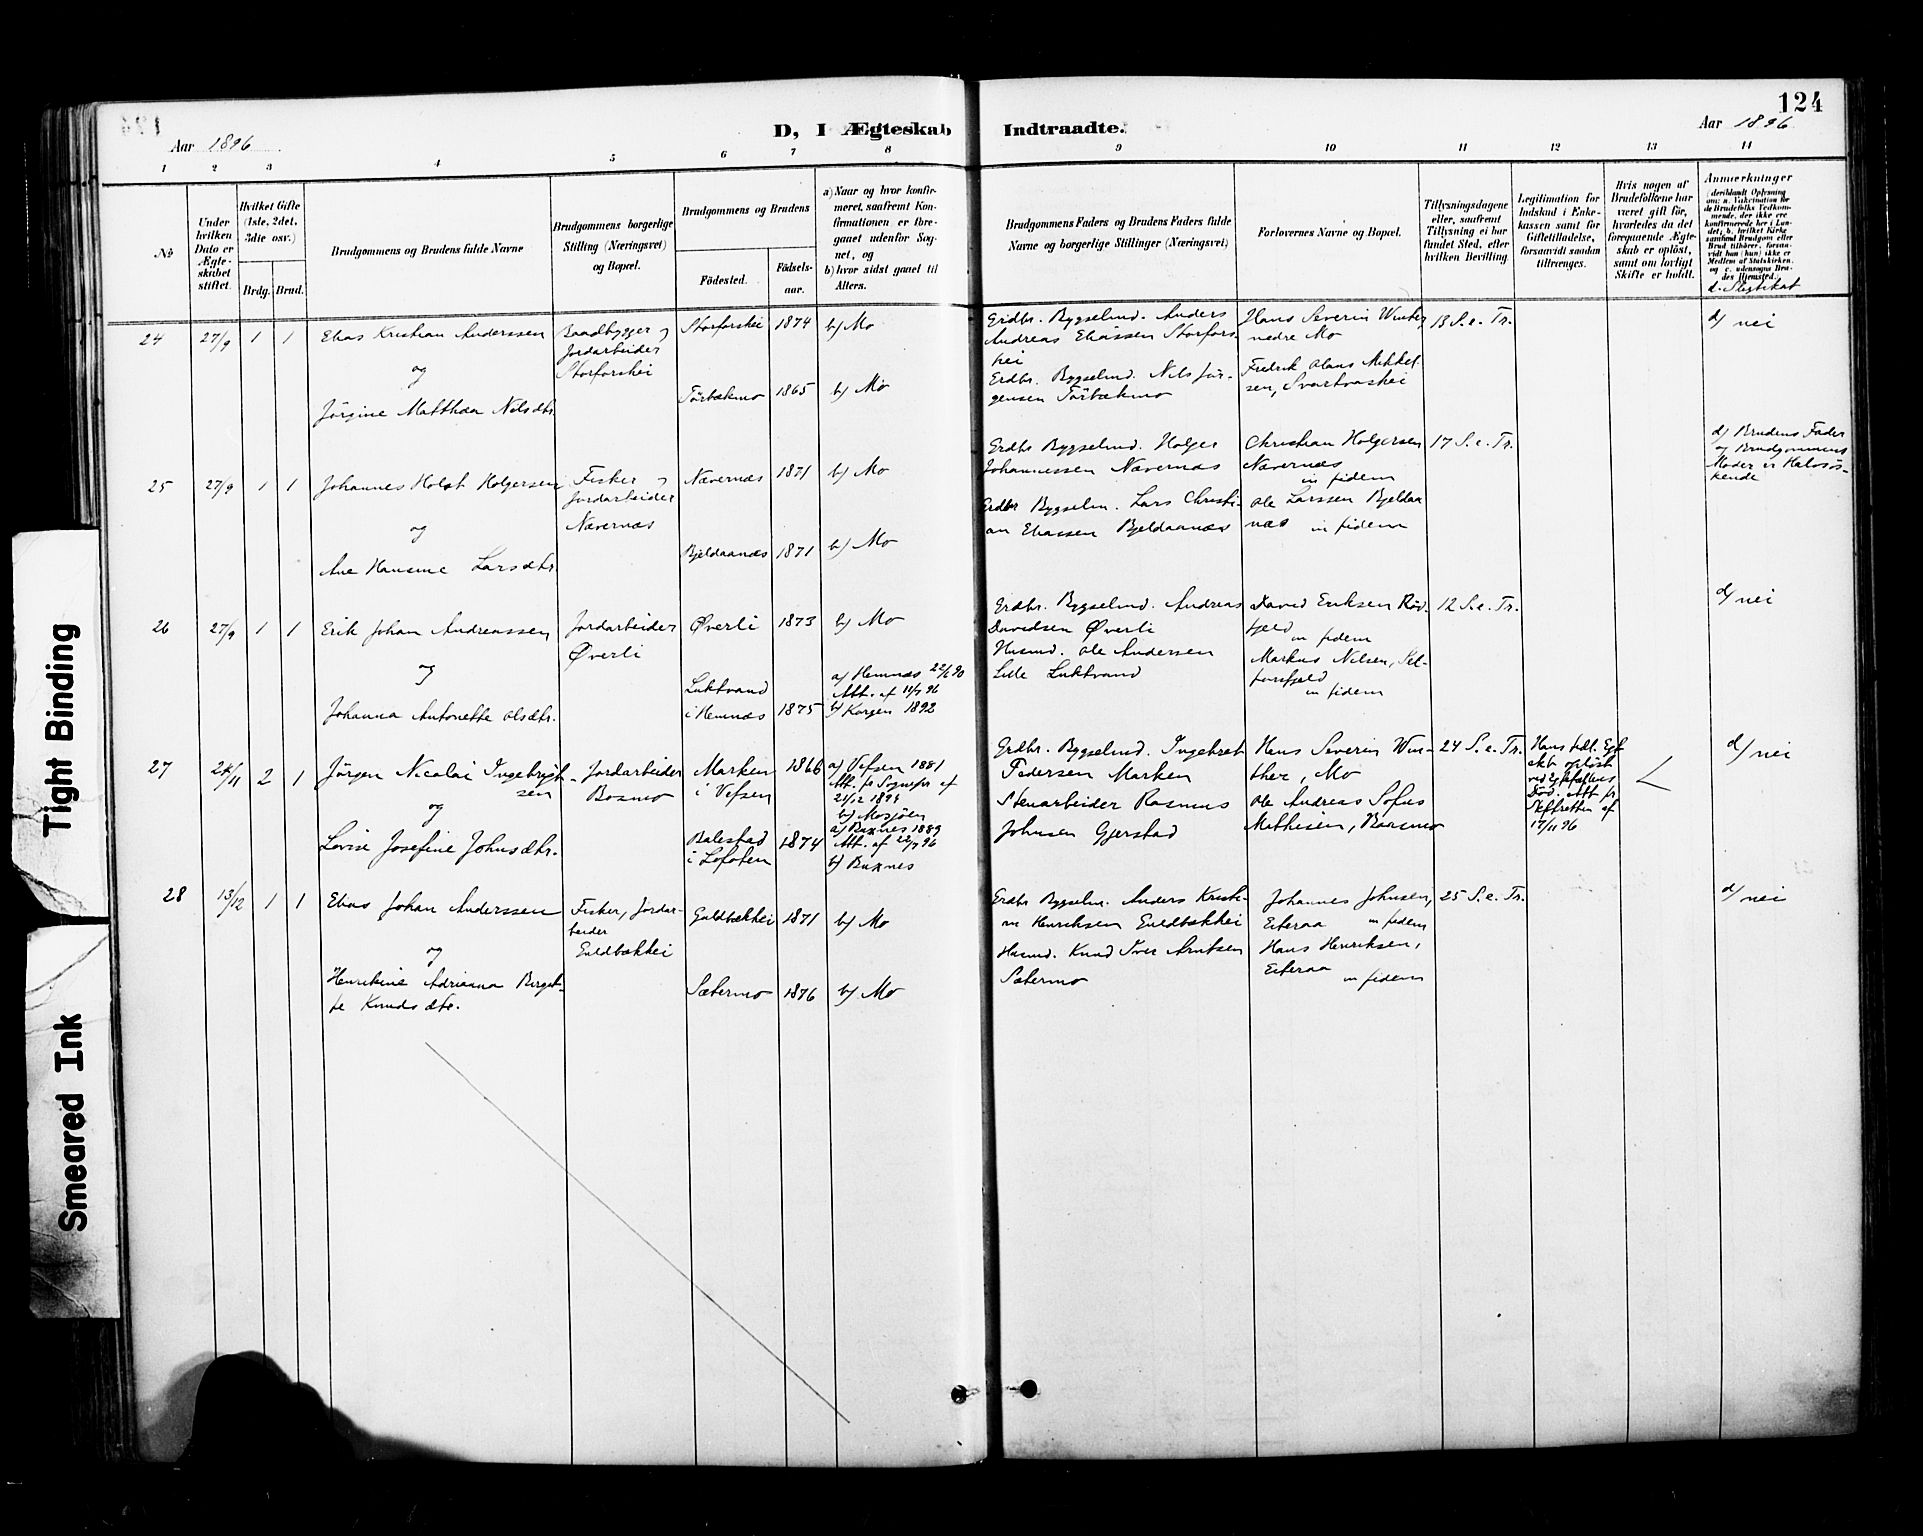 124
D, I Ægteskab Indtraadte.
Aar 1896
Aar 1896
1 2 3 4 5 6 7 8 9 10 11 12 13 14
No
Under hvilken Dato er Ægteskabet stiftet.
Hvilket Gifte (1ste, 2det, 3die osv.)
Brdg. Brud.
Brudgommens og Brudens fulde Navne
Brudgommens borgerlige Stilling (Næringsvei) og Bopæl.
Brudgommens og Brudens
Födested.
Födselsaar.
a) Naar og hvor konfirmeret, saafremt Konfirmationen er foregaaet udenfor Sognet, og
b) hvor sidst gaaet til Alters.
Brudgommens Faders og Brudens Faders fulde Navne og borgerlige Stillinger (Næringsvei)
Forlovernes Navne og Bopæl.
Tillysningsdagene eller, saafremt Tillysning ei har fundet Sted, efter hvilken Bevilling.
Legitimation for Indskud i Enkekassen samt for Giftetilladelse, forsaavidt saadan tiltrænges.
Hvis nogen af Brudefolkene har været gift för, hvorledes da det foregaaende Ægteskab er oplöst, samt om lovligt Skifte er holdt.
Anmærkninger
(deriblandt Oplysning om: a. Vakcination for de Brudefolks Vedkommende, der ikke ere konfirmerede her i Landet, b. hvilket Kirkesamfund Brudgom eller Brud tilhörer, forsaavidt han (hun) ikke er Medlem af Statskirken, og c. udensogns Brudes Hjemsted.)
d. Slegtskab
24 27/9 1 1
Elias Kristian Anderssen
og
Jörgine Matthea Nilsdtr.
Baadbygger og
Jordarbeider
Storforshei
Storforshei 1874 b) Mo
Törbækmo 1865 b) Mo
Grdbr. Bygselmd. Anders
Andreas Eliassen Storfors-
hei
Grdbr. Bygselmd. Nils Jör-
gensen Törbækmo
Hans Severin Winther
nedre Mo
Fredrik Olaus Mikkel-
sen, Svartvashei
13 S. e. Tr.
d) nei
25 27/9 1 1
Johannes Holst Holgersen
og
Ane Hansine Larsdtr.
Fisker og
Jordarbeider
Nævernæs
Nævernæs 1871 b) Mo
Bjeldaanæs 1871 b) Mo
Grdbr Bygselmd. Holger
Johannessen Nævernæs
Grdbr Bygselm. Lars Christi-
an Eliassen Bjeldaanæs
Christian Holgersen
Nævernæs
in fidem
Ole Larssen Bjeldaa
næs in fidem
17 S. e. Tr.
d) Brudens Fader
og Brudgommens
Moder er Halvsös-
kende
26 27/9 1 1
Erik Johan Andreassen
og
Johanna Antonette Olsdtr.
Jordarbeider
Øverli
Øverli 1873 b) Mo
Luktvand
i Hemnæs 1875
a) Hemnæs 22/6 90
Att. af 11/7 96
b) Korgen 1892
Grdbr. Bygselmd. Andreas
Davidsen Øverli
Husmd. Ole Andersen
Lille Luktvand
David Eriksen Röd-
fjeld
in fidem
Markus Nilsen, Sel-
forsfjeld
in fidem
12 S. e. Tr.
d) nei
27 24/11 2 1
Jörgen Nicolai Ingebrigt-
sen
og
Lovise Josefine Johnsdtr.
Jordarbeider
Bosmo
Marken
i Vefsen 1866
Balestad
i Lofoten 1874
a) Vefsen 1881
Att. fr Sognepr af
21/12 1894
b) Mosjöen
a) Buxnes 1889
Att. af 22/7 96
b) Buxnes
Grdbr. Bygselmd. Ingebret
Pedersen Marken
Stenarbeider Rasmus
Johnsen Gjerstad
Hans Severin Win-
ther, Mo
Ole Andreas Sofus
Mathisen, Baasmo
24 S. e. Tr.
Hans tidl. Egt
skb oplöst
ved Egtefælles
Död. Att. fr
Skifretten af
17/11 96
d) nei
28 13/12 1 1
Elias Johan Anderssen
og
Henrikine Adrianna Birgit-
te Knudsdtr.
Fisker, Jordar-
beider
Guldbækhei
Guldbækhei 1871 b) Mo
Sætermo 1876 b) Mo
Grdbr Bygselm. Anders Kristi-
an Henriksen Guldbækhei
Husmd. Knud Iver Arntsen
Sætermo
Johannes Johnsen,
Eiteraa in fidem
Hans Henriksen,
Eiteraa
in fidem
25 S. e. Tr.
d) nei
Tight Binding
Smeared Ink